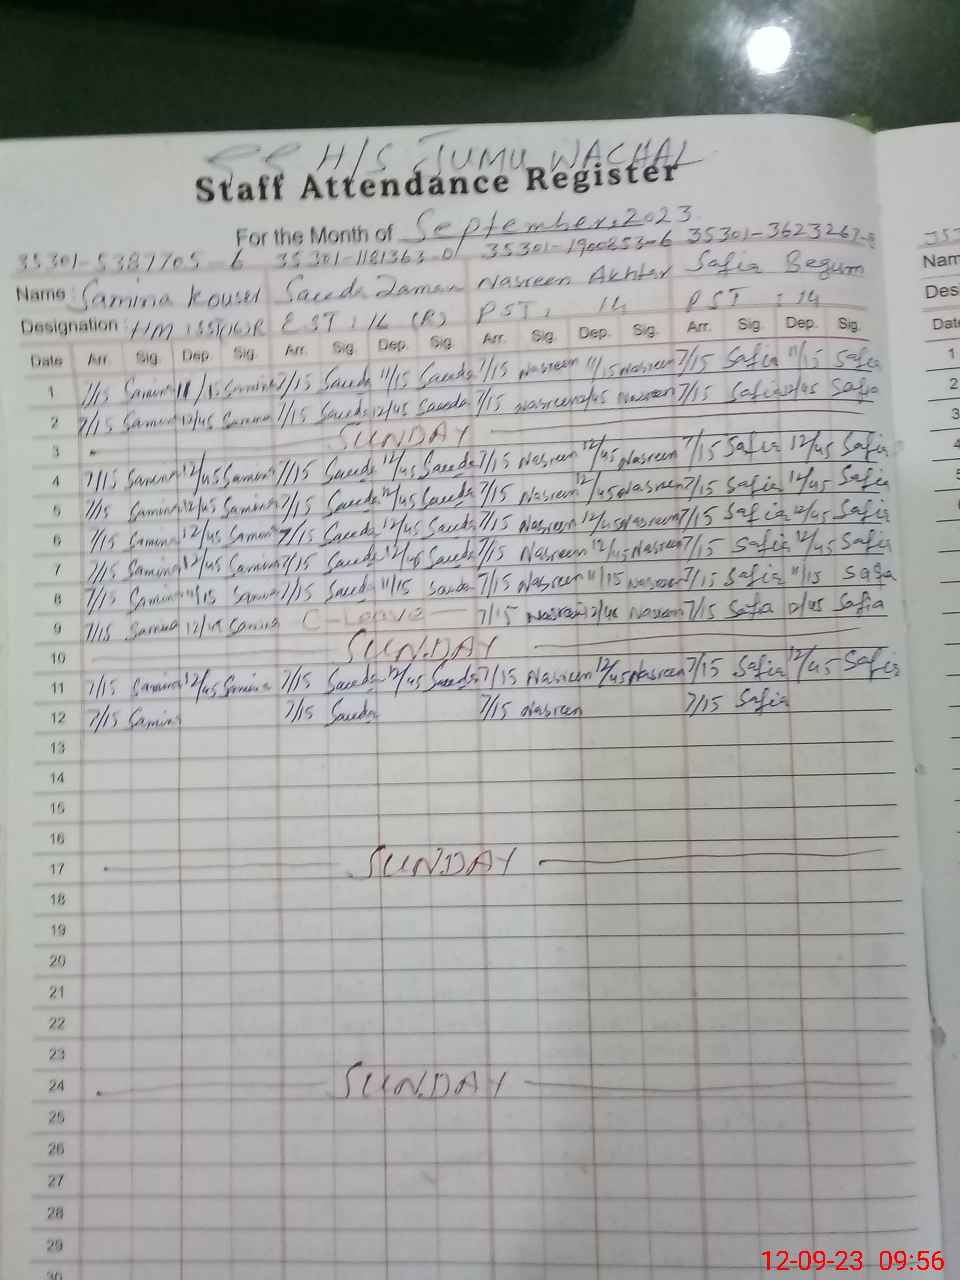 H/S JUMU WACHAL
Staff Attendance Register
For the Month of September, 2023
35301-5387705-6 35301-1181363-01 35301-1900853-6 35301-3623267-8
Name Samina Kouser Saeeda Zaman Nasreen Akhtar Safia Begum
Designation HM (R) EST: 16 (R) PST, 14 PST: 14
Date Arr. Sig. Dep. Sig. Arr. Sig. Dep. Sig. Arr. Sig. Dep. Sig. Arr. Sig. Dep. Sig.
1 7/15 Samina 11/15 Samina 7/15 Saeeda 11/15 Saeeda 7/15 Nasreen 11/15 Nasreen 7/15 Safia 11/15 Safia
2 7/15 Samina 12/45 Samina 7/15 Saeeda 12/45 Saeeda 7/15 Nasreen 12/45 Nasreen 7/15 Safia 12/45 Safia
3 SUNDAY
4 7/15 Samina 12/45 Samina 7/15 Saeeda 12/45 Saeeda 7/15 Nasreen 12/45 Nasreen 7/15 Safia 12/45 Safia
5 7/15 Samina 12/45 Samina 7/15 Saeeda 12/45 Saeeda 7/15 Nasreen 12/45 Nasreen 7/15 Safia 12/45 Safia
6 7/15 Samina 12/45 Samina 7/15 Saeeda 12/45 Saeeda 7/15 Nasreen 12/45 Nasreen 7/15 Safia 12/45 Safia
7 7/15 Samina 12/45 Samina 7/15 Saeeda 12/45 Saeeda 7/15 Nasreen 12/45 Nasreen 7/15 Safia 12/45 Safia
8 7/15 Samina 11/15 Samina 7/15 Saeeda 11/15 Saeeda 7/15 Nasreen 11/15 Nasreen 7/15 Safia 11/15 Safia
9 7/15 Samina 12/45 Samina C-Leave 7/15 Nasreen 12/45 Nasreen 7/15 Safia 12/45 Safia
10 SUNDAY
11 7/15 Samina 12/45 Samina 7/15 Saeeda 12/45 Saeeda 7/15 Nasreen 12/45 Nasreen 7/15 Safia 12/45 Safia
12 7/15 Samina 7/15 Saeeda 7/15 Nasreen 7/15 Safia
13
14
15
16
17 SUNDAY
18
19
20
21
22
23
24 SUNDAY
25
26
27
28
29
30
12-09-23 09:56